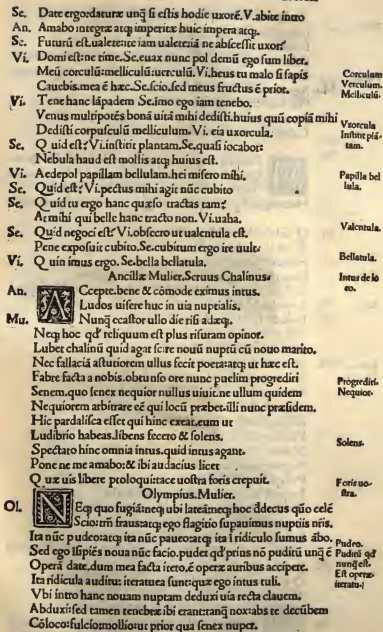 Se. Date ergo:daturæ unq̃ si estis hodie uxorẽ.V.abite intro
An. Amabo integræ atq; imperitæ huic impera atq;.
Se. Futurũ est.ualete:ite iam ualete:ita ne abscessit uxor?
Vi. Domi est:ne time.Se.euax nunc pol demũ ego sum liber.
Meũ corculũ:melliculũ:uerculũ.Vi.heus tu malo si sapis
Corculum
Cauebis.mea ẽ hæc.Se.scio.sed meus fructus ẽ prior.
Verculum.
Melliculũ.
Vi. Tene hanc lãpadem Se.imo ego iam tenebo.
Venus multipotẽs bonã uitã mihi dedisti.huius quũ copiã mihi
Vxorcula
Dedisti corpusculũ melliculum.Vi. eia uxorcula.
Institit plã-
tam.
Se. Quid est? Vi.institit plantam.Se.quasi iocabor:
Nebula haud est mollis atq; huius est.
Vi. Aedepol papillam bellulam.hei misero mihi.
Papilla bel
lula.
Se. Quid est? Vi.pectus mihi agit nũc cubito
Se. Quid tu ergo hanc quæso tractas tam?
At mihi qui belle hanc tracto non.Vi.uaha.
Se. Quid negoci est? Vi.obsecro ut ualentula est.
Valentula.
Pene exposuit cubito.Se.cubitum ergo ire uult:
Vi. Quin imus ergo.Se.bella bellatula.
Bellatula.
Ancillæ Mulier.Seruus Chalinus:
Intus de lo
eo.
An. ACcepte.bene & cõmode eximus intus.
Ludos uisere huc in uia nuptialis.
Mu. Nunq̃ ecastor ullo die risi adæq;.
Neq; hoc qd' reliquum est plus risuram opinor.
Lubet chalinũ quid agat scire nouũ nuptũ cũ nouo marito.
Nec fallaciã astutiorem ullus fecit poeta:atq; ut hæc est.
Fabre facta a nobis.obtunso ore nunc puelim progrediri
Progrediri.
Senem.quo senex nequior nullus uiuit.ne ullum quidem
Nequior.
Nequiorem arbitrare eẽ qui locũ præbet.illi nunc præsidem.
Hic pardalisca esset qui hinc exeat.eum ut
Ludibrio habeas.libens fecero & solens.
Solens.
Spectato hinc omnia intus.quid intus agant.
Pone ne me amabo:& ibi audacius licet
Quæ uis libere proloqui:tace uostra foris crepuit.
Foris uo-
stra.
Olympius.Mulier.
Ol. NEq; quo fugiã:neq; ubi lateã:neq; hoc ddecus quo celẽ
Scio:tm̃ fraus:atq; ego flagitio supauimus nuptiis nr̃is.
Ita nũc pudeo:atq; ita nũc paueo:atq; ita ĩ ridiculo sumus ãbo.
Pudeo.
Sed ego ĩsipiẽs noua nũc facio.pudet qd' prius nõ puditũ unq̃ ẽ
Puditũ qd'
nunq̃ est.
Operã date.dum mea facta itero.ẽ operæ auribus accipere.
Est operæ.
Ita ridicula auditu: iteratu ea sunt:quæ ego intus tuli.
iteratu.
Vbi intro hanc nouam nuptam deduxi uia recta clauem.
Abduxi:sed tamen tenebræ ibi erant:tanq̃ nox:abs te decũbem
Cõloco:fulcio:mollio:ut prior qua senex nuper.